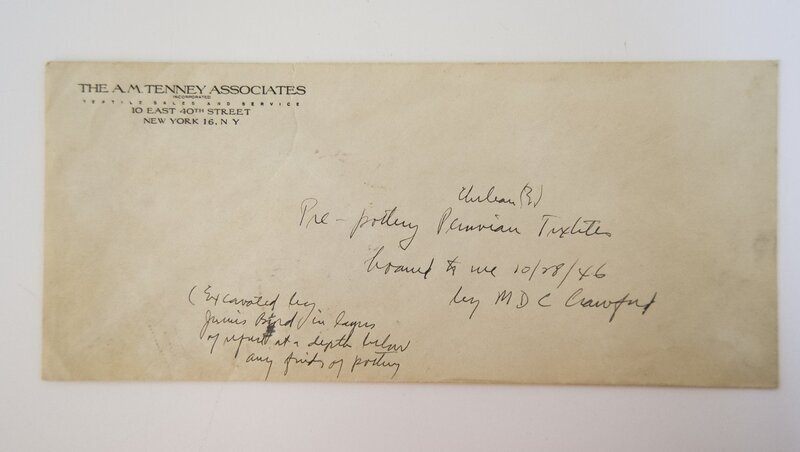 THE A.M. TENNEY ASSOCIATES
INCORPORATED
TEXTILE SALES AND SERVICE
10 EAST 40TH STREET
NEW YORK 16, N Y
Chilean (?)
Pre-pottery Peruvian Textiles
loaned to me 10/28/46
by M D C Crawford
(Excavated by
Junius Bird in layers
of refuse at a depth below
any finds of pottery